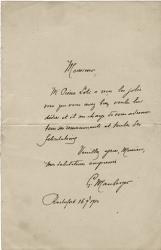 Monsieur
M Pierre Loti a reçu les jolis
vers que vous avez bien voulu lui
dédier et il me charge de vous adresser
tous ses remerciements et toutes ses
félicitations
Veuillez agréer, Monsieur,
mes salutations empressées
G. Mauberger
Rochefort